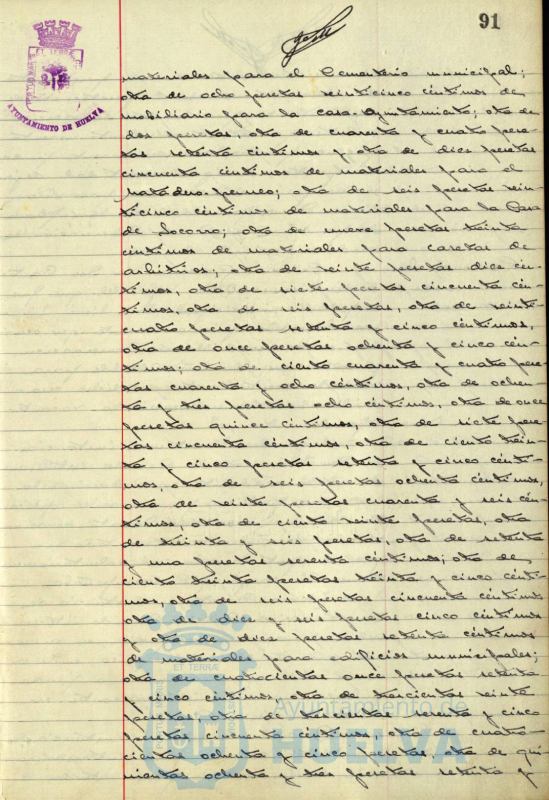 91
AYUNTAMIENTO DE HUELVA
materiales para el Cementerio municipal;
otra de ocho pesetas veinticinco céntimos de
mobiliario para la casa-Ayuntamiento; otra de
dos pesetas, otra de cuarenta y cuatro pese-
tas setenta céntimos y otra de diez pesetas
cincuenta céntimos de materiales para el
Matadero-perneo; otra de seis pesetas vein-
ticinco céntimos de materiales para la Casa
de Socorro; otra de nueve pesetas treinta
céntimos de materiales para casetas de
arbitrios; otra de veinte pesetas diez cén-
timos, otra de siete pesetas cincuenta cén-
timos, otra de seis pesetas, otra de veinti-
cuatro pesetas setenta y cinco céntimos,
otra de once pesetas ochenta y cinco cén-
timos; otra de ciento cuarenta y cuatro pese-
tas cuarenta y ocho céntimos, otra de ochen-
ta y tres pesetas ocho céntimos, otra de once
pesetas quince céntimos, otra de siete pese-
tas cincuenta céntimos, otra de ciento trein-
ta y cinco pesetas setenta y cinco cénti-
mos, otra de seis pesetas ochenta céntimos,
otra de veinte pesetas cuarenta y seis cén-
timos, otra de ciento veinte pesetas, otra
de treinta y seis pesetas, otra de setenta
y una pesetas sesenta céntimos; otra de
ciento treinta pesetas treinta y cinco cénti-
mos, otra de seis pesetas cincuenta céntimos
otra de diez y seis pesetas cinco céntimos
y otra de diez pesetas setenta céntimos
de materiales para edificios municipales;
otra de cuatrocientas once pesetas setenta
y cinco céntimos, otra de trescientas veinte
pesetas, otra de trescientas y cinco
pesetas cincuenta céntimos, otra de cuatro-
cientas ochenta y cinco pesetas, otra de qui-
nientas ochenta y tres pesetas setenta y
Ayuntamiento de
HUELVA